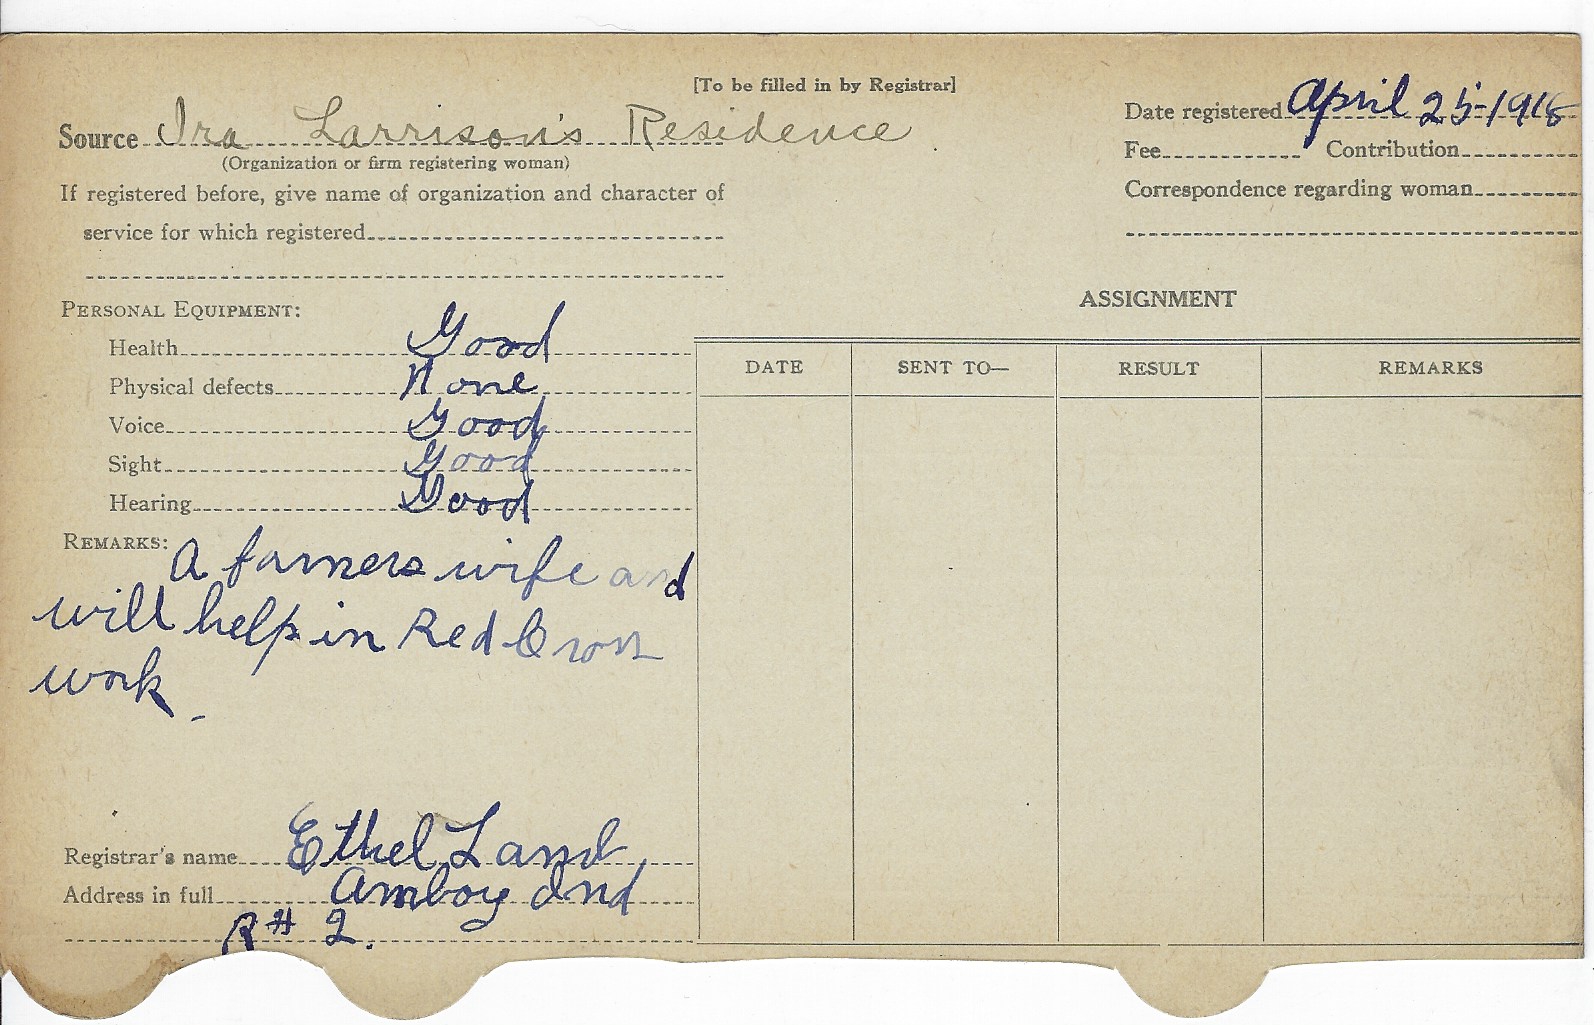 [To be filled in by Registrar]
Source Ira Larrison's Residence
(Organization or firm registering woman)
If registered before, give name of organization and character of
service for which registered
Date registered April 25-1918
Fee Contribution
Correspondence regarding woman
PERSONAL EQUIPMENT:
Health Good
Physical defects None
Voice Good
Sight Good
Hearing Good
REMARKS: A farmers wife and
will help in Red Cross
work.
Registrar's name Ethel Land
Address in full Amboy Ind
R# 2.
ASSIGNMENT
DATE SENT TO— RESULT REMARKS